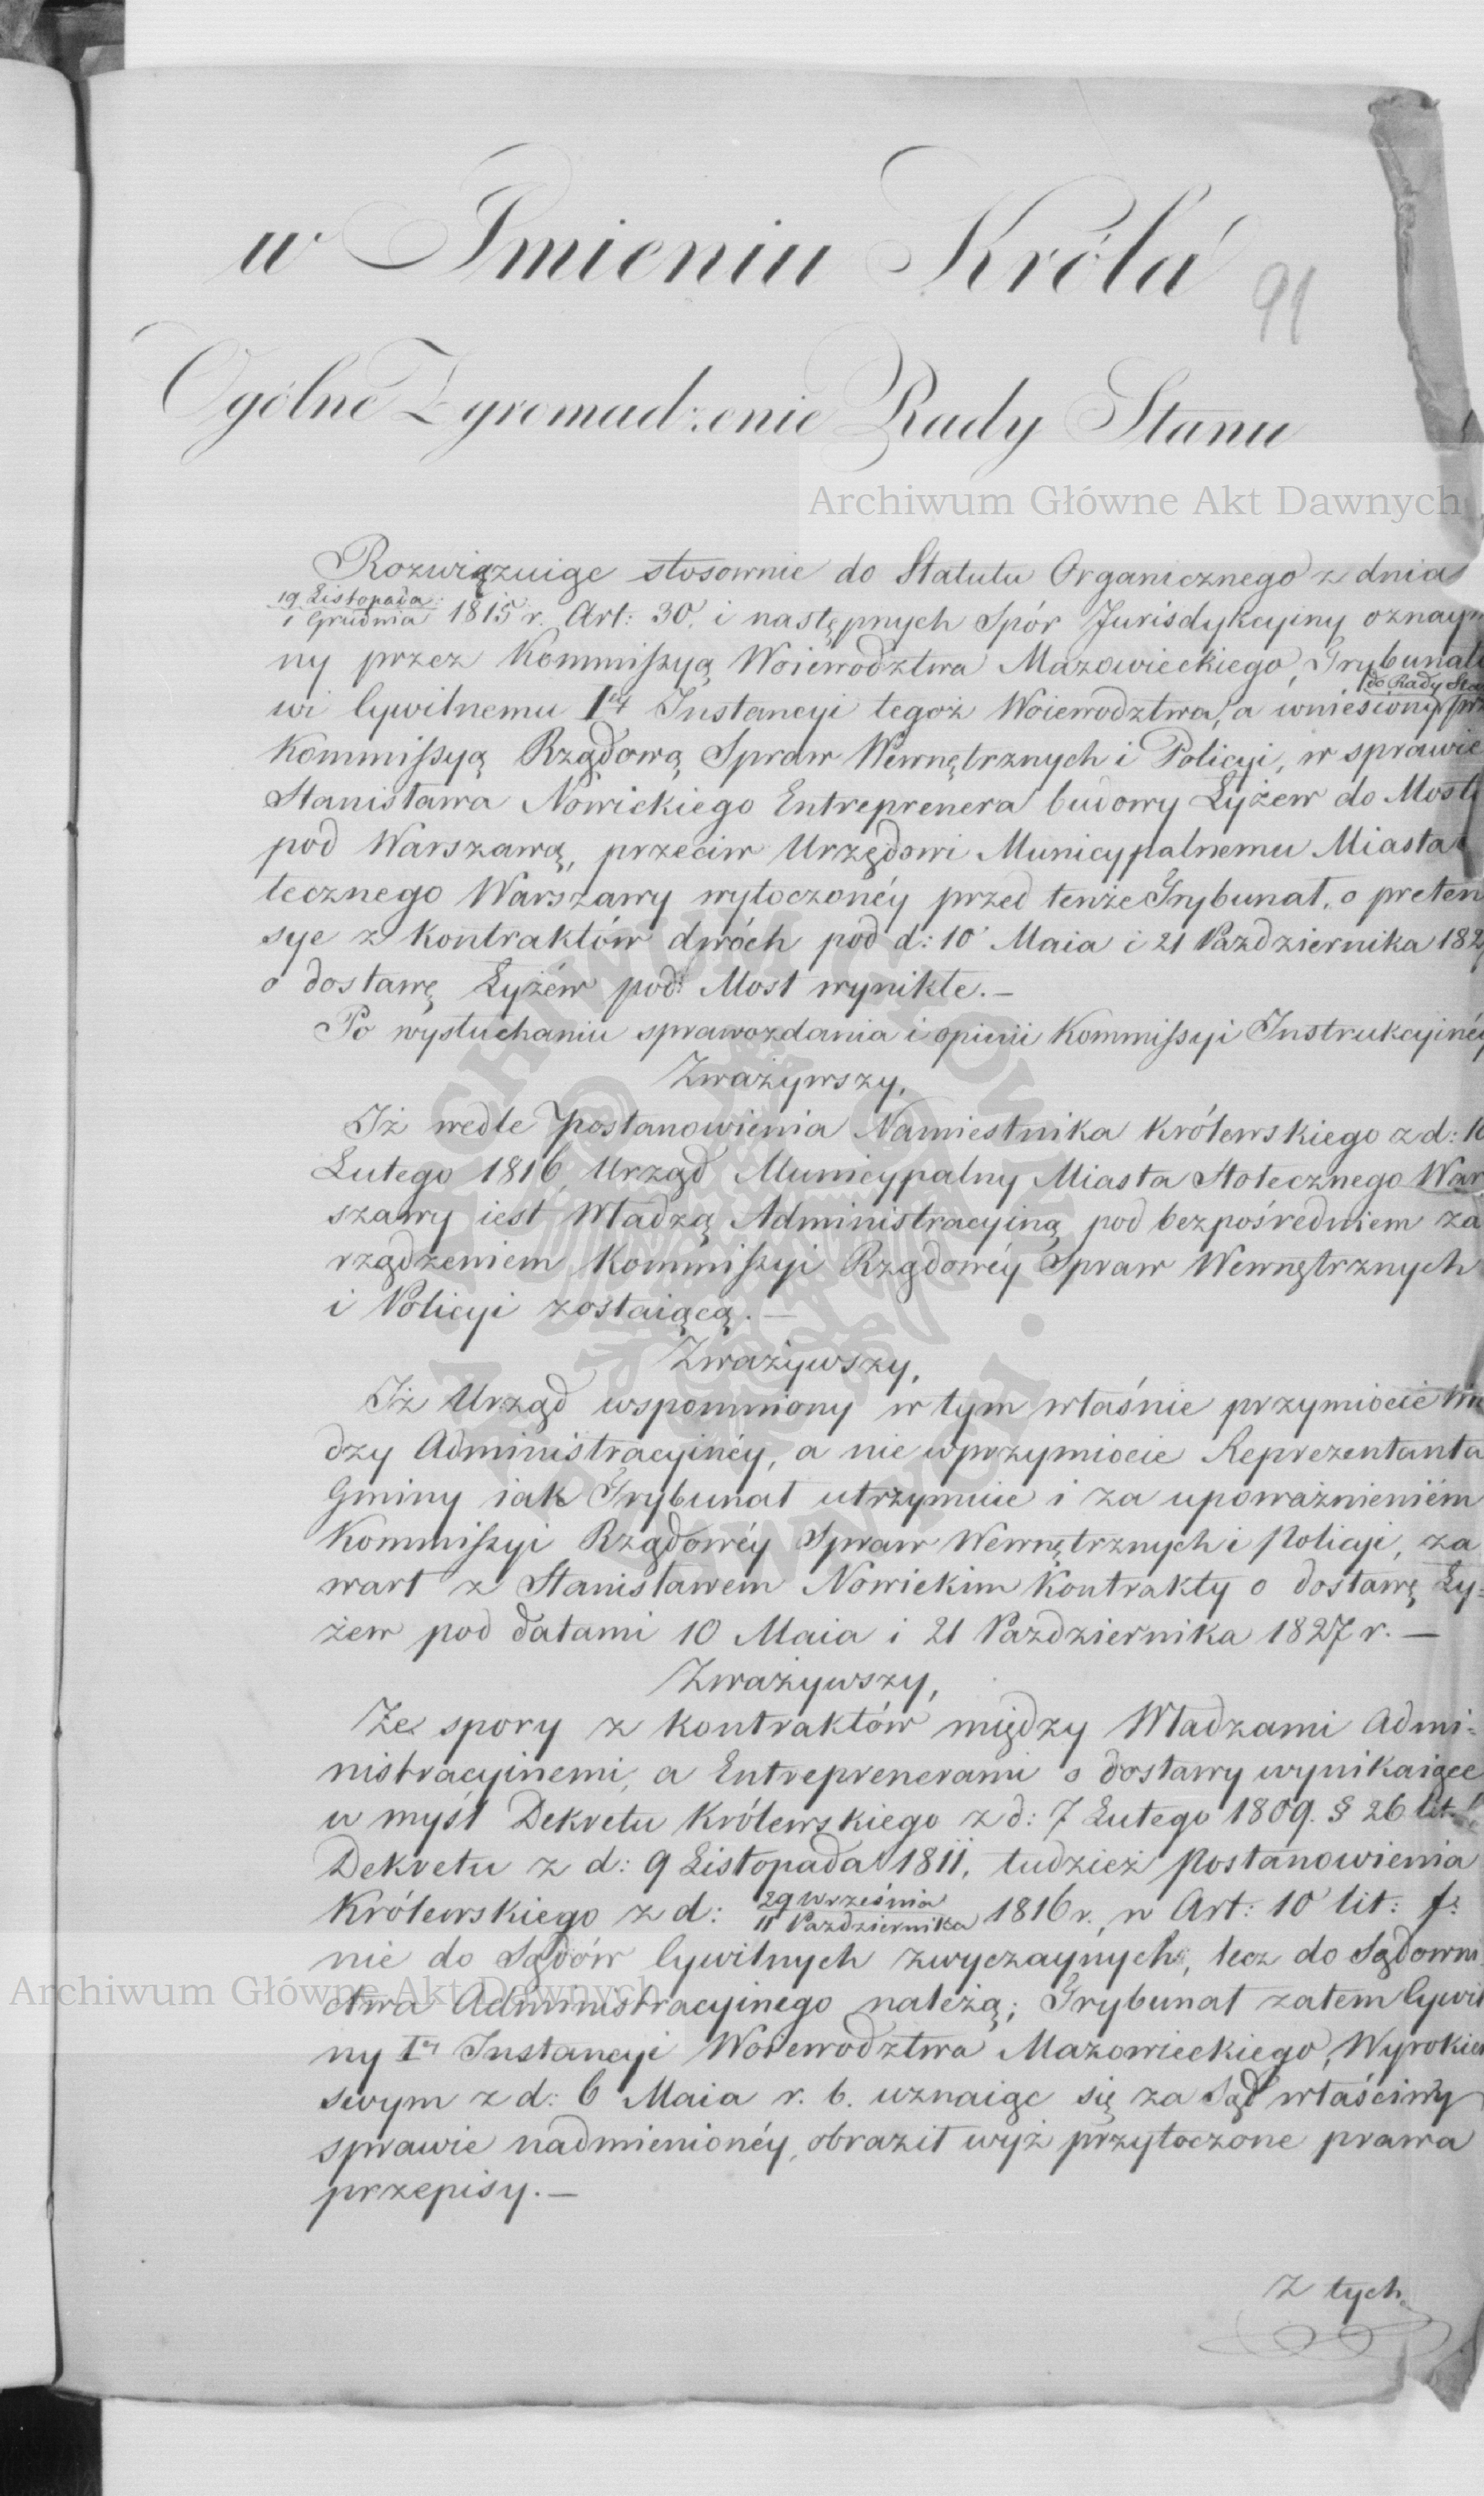 w Imieniu Króla
91
Ogólne Zgromadzenie Rady Stanu
Archiwum Główne Akt Dawnych
Rozwiązuiąc stosownie do Statutu Organicznego z dnia
19 Listopada
1 Grudnia 1815 r. Art: 30. i następnych Spór Jurisdykcyiny oznaym
ny przez Kommissyą Woiewodztwa Mazowieckiego, Trybunało
do Rady Sta
wi Cywilnemu Iéy Instancyi tegoż Woiewodztwa, a wniesiony prz
Kommissyą Rządową Spraw Wewnętrznych i Policyi, w sprawie
Stanisława Nowickiego Entreprenera budowy Łyżew do Mostu
pod Warszawą, przeciw Urzędowi Municypalnemu Miasta
łecznego Warszawy wytoczonéy przed tenże Trybunał, o preten
sye z kontraktów dwóch pod d: 10 Maia i 21 Pazdziernika 182
o dostawę Łyżew pod Most wynikłe. —
Po wysłuchaniu sprawozdania i opinii Kommissyi Instrukcyinéy
Zważywszy,
Iż wedle Postanowienia Namiestnika Królewskiego z d: 10
Lutego 1816, Urząd Municypalny Miasta Stołecznego War
szawy iest Władzą Administracyiną pod bezpośredniem za
rządzeniem Kommissyi Rządowéy Spraw Wewnętrznych
i Policyi zostaiącą. —
Zważywszy,
Iż Urząd wspomniony w tym właśnie przymiocie Wła
dzy Administracyinéy, a nie w przymiocie Reprezentanta
Gminy iak Trybunał utrzymuie i za upoważnieniem
Kommissyi Rządowéy Spraw Wewnętrznych i Policyi, za
warł z Stanisławem Nowickim Kontrakty o dostawę Ły=
żew pod datami 10 Maia i 21 Pazdziernika 1827 r. —
Zważywszy,
Że spory z kontraktów między Władzami Admi=
nistracyinemi, a Entreprenerami o dostawy wynikaiące
w myśl Dekretu Królewskiego z d: 7 Lutego 1809. § 26 lit.
Dekretu z d: 9 Listopada 1811, tudzież Postanowienia
Królewskiego z d: 29 Września
11 Pazdziernika 1816 r., w Art: 10 lit: f.
nie do Sądów Cywilnych zwyczaynych, lecz do Sądowni
ctwa Administracyinego należą; Trybunał zatem Cywil
Archiwum Główne Akt Dawnych
ny Iéy Instancyi Woiewodztwa Mazowieckiego, Wyrokiem
swym z d: 6 Maia r. b. uznaiąc się za Sąd właściwy
sprawie nadmienionéy, obraził wyż przytoczone prawa
przepisy. —
Z tych